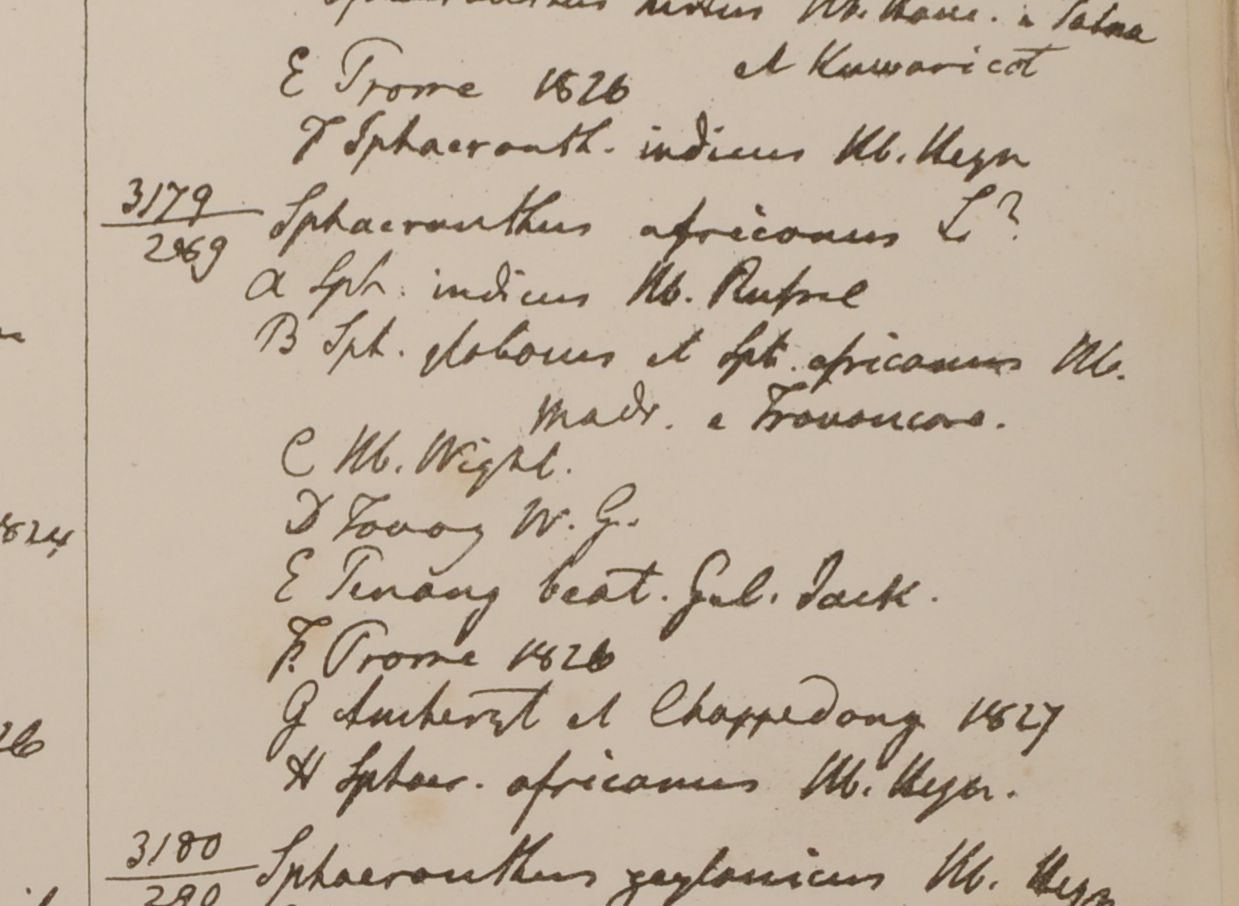 Sphaeranthus hirtus Hb. Ham. e Patna
et Kuwaricot
E Prome 1826
F Sphaeranth. indicus Hb. Heyn
3179 Sphaeranthus africanus L?
2969
A Sph. indicus Hb. Russel
B Sph. globosus et Sph. africanus Hb.
Madr. e Travancore.
C Hb. Wight.
D Tavoy W. G.
E Penang beat. Gul. Jack.
F. Prome 1826
G Amherst et Chappedong 1827
H Sphaer. africanus Hb. Heyn.
3180 Sphaeranthus zeylanicus Hb. Heyn
290
1824
26